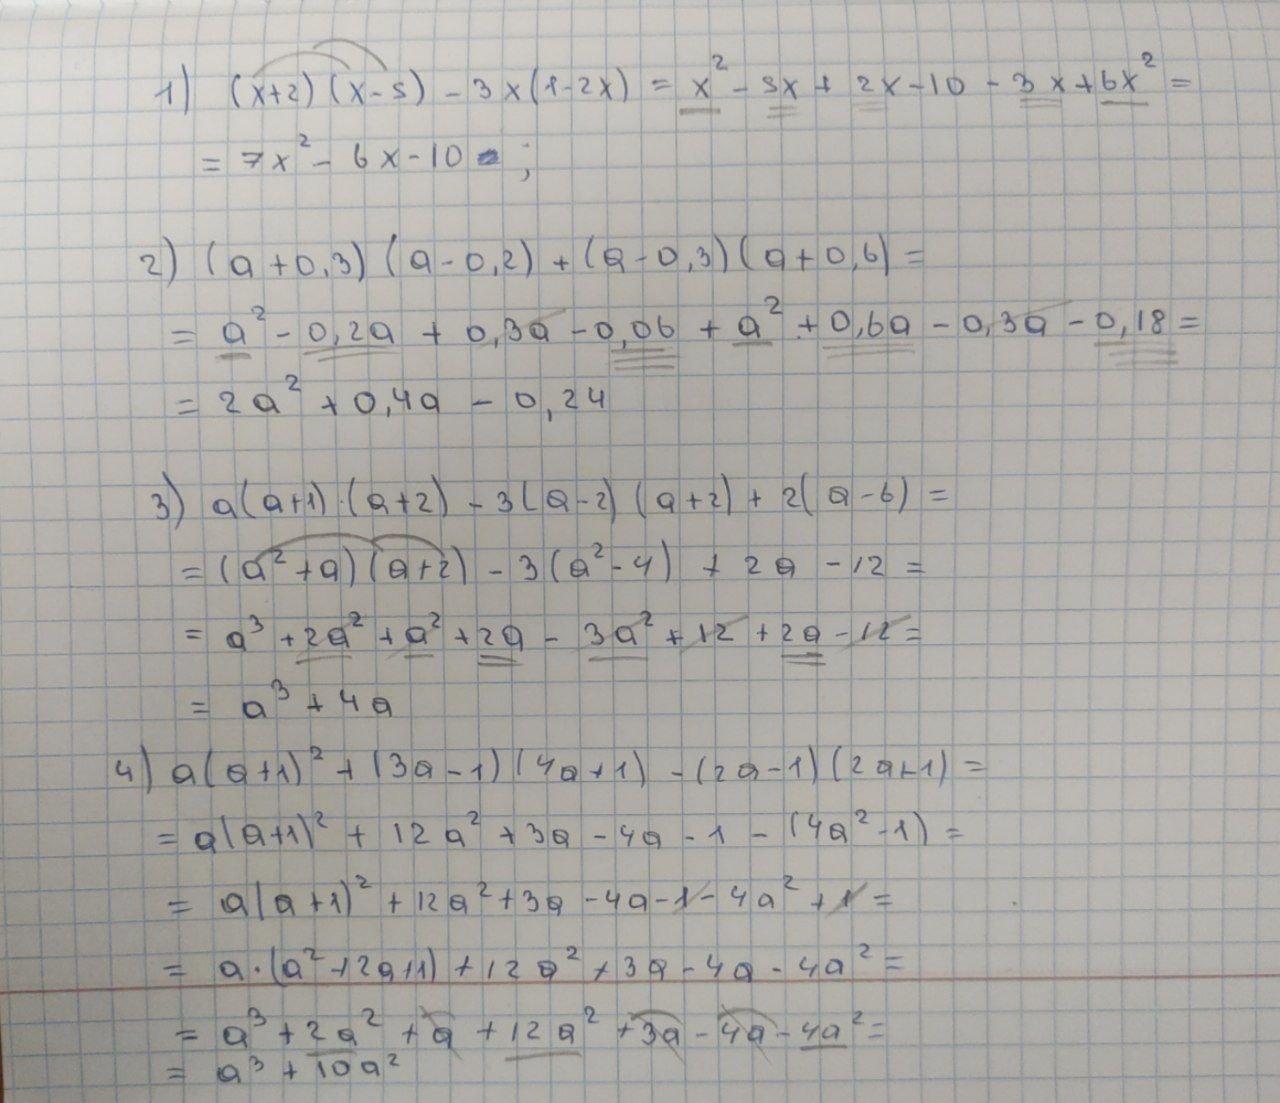 1) (x+2)(x-5) - 3x(1-2x) = x² - 5x + 2x - 10 - 3x + 6x² =
= 7x² - 6x - 10 ;
2) (a+0,3)(a-0,2) + (a-0,3)(a+0,6) =
= a² - 0,2a + 0,3a - 0,06 + a² + 0,6a - 0,3a - 0,18 =
= 2a² + 0,4a - 0,24
3) a(a+1)·(a+2) - 3(a-2)(a+2) + 2(a-6) =
= (a²+a)(a+2) - 3(a²-4) + 2a - 12 =
= a³ + 2a² + a² + 2a - 3a² + 12 + 2a - 12 =
= a³ + 4a
4) a(a+1)² + (3a-1)(4a+1) - (2a-1)(2a+1) =
= a(a+1)² + 12a² + 3a - 4a - 1 - (4a²-1) =
= a(a+1)² + 12a² + 3a - 4a - 1 - 4a² + 1 =
= a·(a²+2a+1) + 12a² + 3a - 4a - 4a² =
= a³ + 2a² + a + 12a² + 3a - 4a - 4a² =
= a³ + 10a²